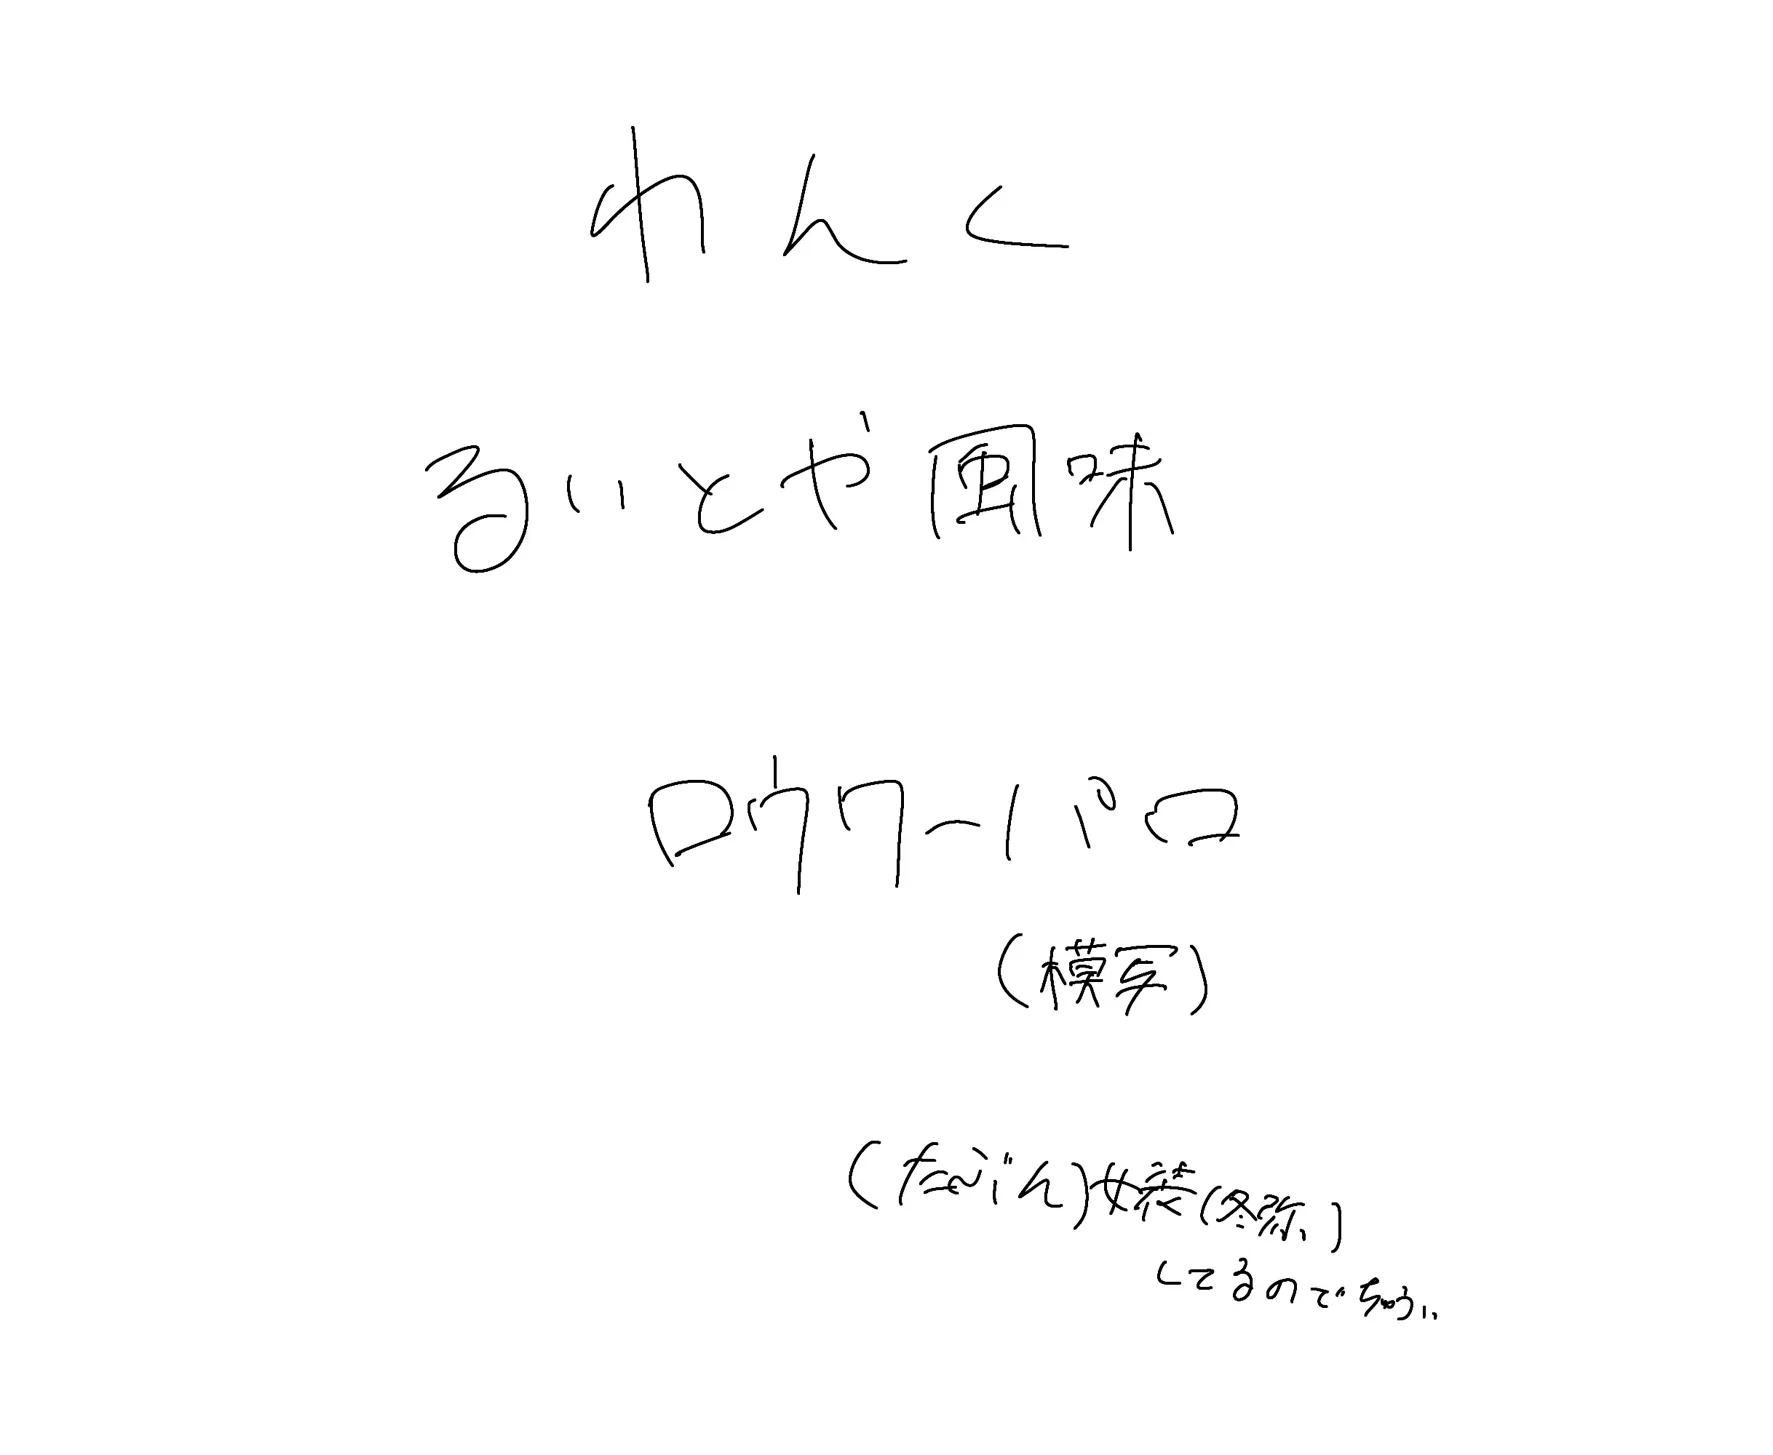 わんく
るいとや風味
ロウワーパロ
(模写)
(たぶん)女装(冬弥)
してるのでちゅうい